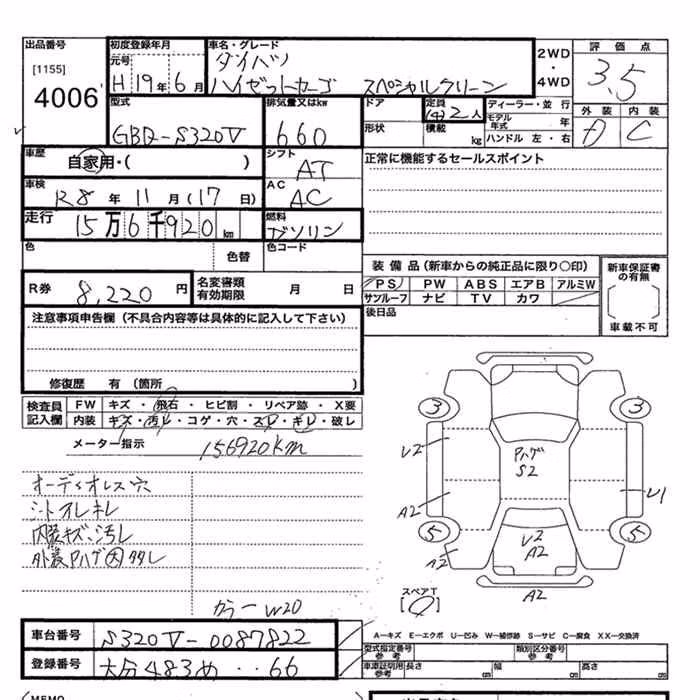 出品番号
[1155]
4006
初度登録年月
元号
H 19年 6月
車名・グレード
ダイハツ
ハイゼットカーゴ スペシャルクリーン
2WD
・
4WD
評価点
3.5
外装 内装
D C
型式
GBD-S320V
排気量又はkw
660
ドア
形状
定員
(4) 2人
積載 kg
ディーラー・並行
モデル年式 年
ハンドル 左・右
車歴
自家用・( )
シフト
AT
正常に機能するセールスポイント
車検
R8年 11月 (17日)
AC
AC
走行
15万6千920km
燃料
ガソリン
色
色替
色コード
装備品(新車からの純正品に限り○印)
PS PW ABS エアB アルミW
サンルーフ ナビ TV カワ
後日品
新車保証書の有無
車載不可
R券
8,220円
名変書類有効期限
月 日
注意事項申告欄(不具合内容等は具体的に記入して下さい)
修復歴 有(箇所
検査員記入欄
FW キズ・飛石・ヒビ割・リペア跡・X要
内装 キズ・汚レ・コゲ・穴・スレ・キレ・破レ
メーター指示
156920km
オーディオレス穴
シートオレキレ
内装キズ、汚レ
外装Pハゲ大多し
カラー W20
3
3
U2
PハゲS2
A2
U1
5
5
U2
A2
A2
A2
スペアT
車台番号
S320V-0087822
登録番号
大分483め・・66
A—キズ E—エクボ U—凹み W—補修跡 S—サビ C—腐食 XX—交換済
型式指定番号
参考
類別区分番号
参考
車庫証明用
参考
長さ cm
幅 cm
高さ cm
(MEMO